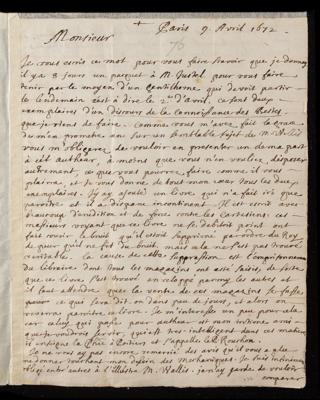 Paris 9 Avril 1672
Monsieur
Je vous écris ce mot pour vous faire sçavoir que je donnay
il y a 8 jours un pacquet à M. Justel pour vous faire
tenir par le moyen d'un gentilhome qui devoit partir
le lendemain c'est à dire le 2 d'avril. ce sont deux
exemplaires d'un Discours de la connoissance des Bestes
que je viens de faire. comme vous m'avez fait la grace
de m'en promettre un sur un semblable sujet de M. Willis
vous m'obligerez de vouloir en presenter un de ma part
à cet autheur, à moins que vous n'en vouliez disposer
autrement, ce que vous pourrez faire come il vous
plaira, et je vous donne de bon coeur tous les deux
exemplaires. J'y ay ajouté un livre qui n'a fait icy que
paroitre et il a disparu incontinent. Il est écrit avec
beaucoup d'erudition et de force contre les Cartesiens; ces
messieurs voyant que ce livre ne se débitoit point ont
fait courir le bruit qu'il étoit supprimé par ordre du Roy
de peur qu'il ne fit du bruit, mais cela ne s'est pas trouvé
veritable. la cause de cette suppression est l'emprisonnement
du libraire dont tous les magazins ont esté saisis, de sorte
que ce livre s'est trouvé enveloppé parmy les autres et
il faut attendre que la vente de ces magazins se fasse
pour ce que sera dit on dans peu de jours, et alors on
reverra paroitre ce livre. Je m'interesse un peu pour cela
car celuy qui passe pour autheur est mon intime ami
que je voudrois servir, qui est tres intelligent dans ces matieres
il enseigne la Phie à Poitiers et s'appelle le P. Rochon.
Je ne vous ay pas encore remercié des avis qu'il vous a plu
me donner touchant mon dessein des Mechaniques. Je suis infiniment
obligé entre autres à l'illustre M. Wallis. je n'ay garde de vouloir
comparer